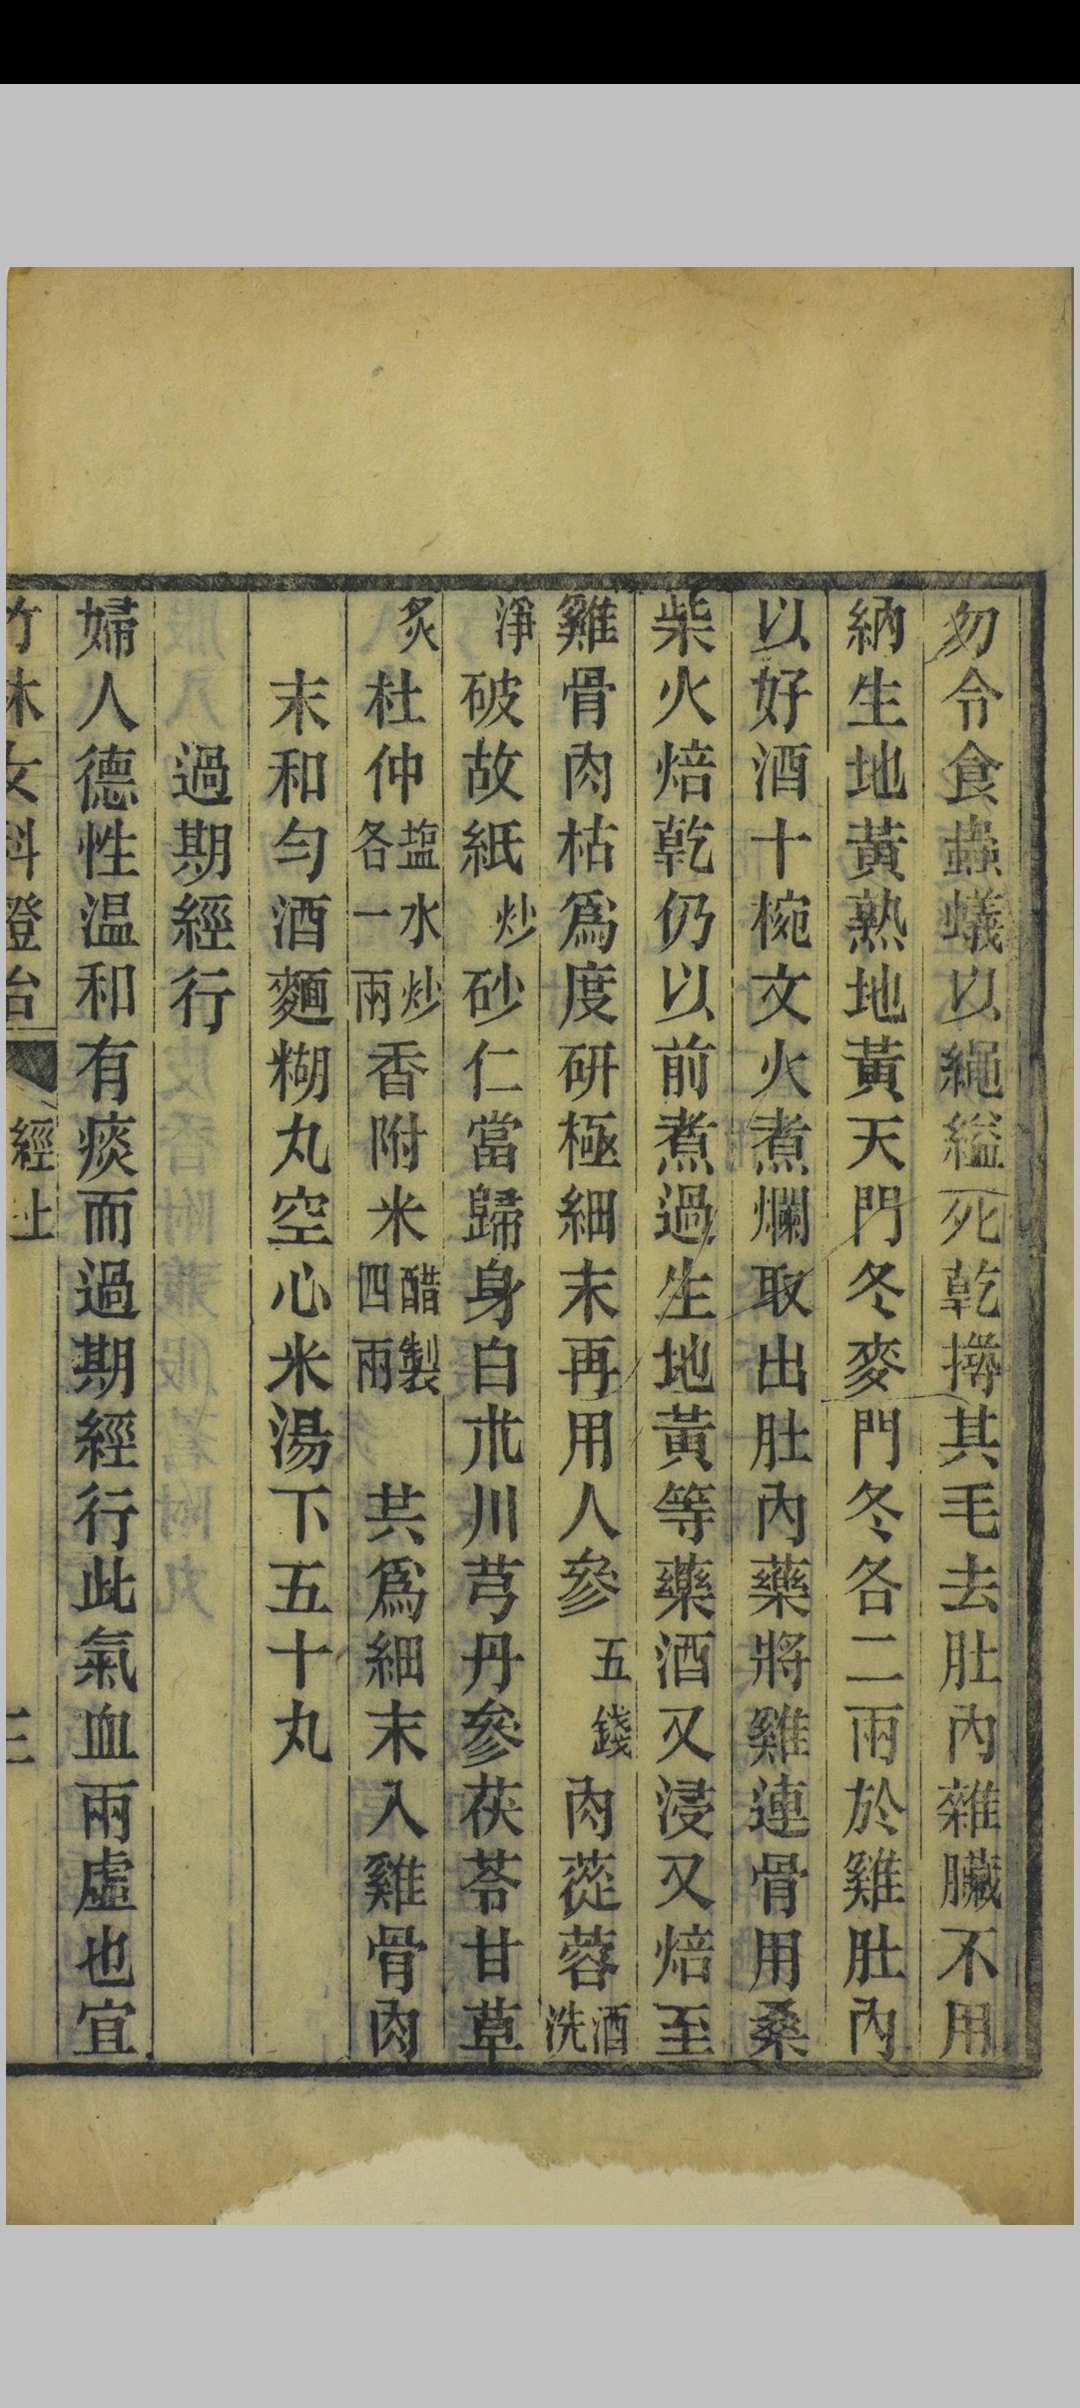 勿令食蟲蟻以繩縊死乾撏其毛去肚內雜臟不用
納生地黃熟地黃天門冬麥門冬各二兩於雞肚內
以好酒十椀文火煮爛取出肚內藥將雞連骨用桑
柴火焙乾仍以前煮過生地黃等藥酒又浸又焙至
雞骨肉枯爲度研極細末再用人參五錢肉蓯蓉酒洗
淨破故紙炒砂仁當歸身白朮川芎丹參茯苓甘草
炙杜仲塩水炒各一兩香附米醋製四兩共爲細末入雞骨肉
末和勻酒麵糊丸空心米湯下五十丸
過期經行
婦人德性温和有痰而過期經行此氣血兩虛也宜
竹林女科證治 經上 三